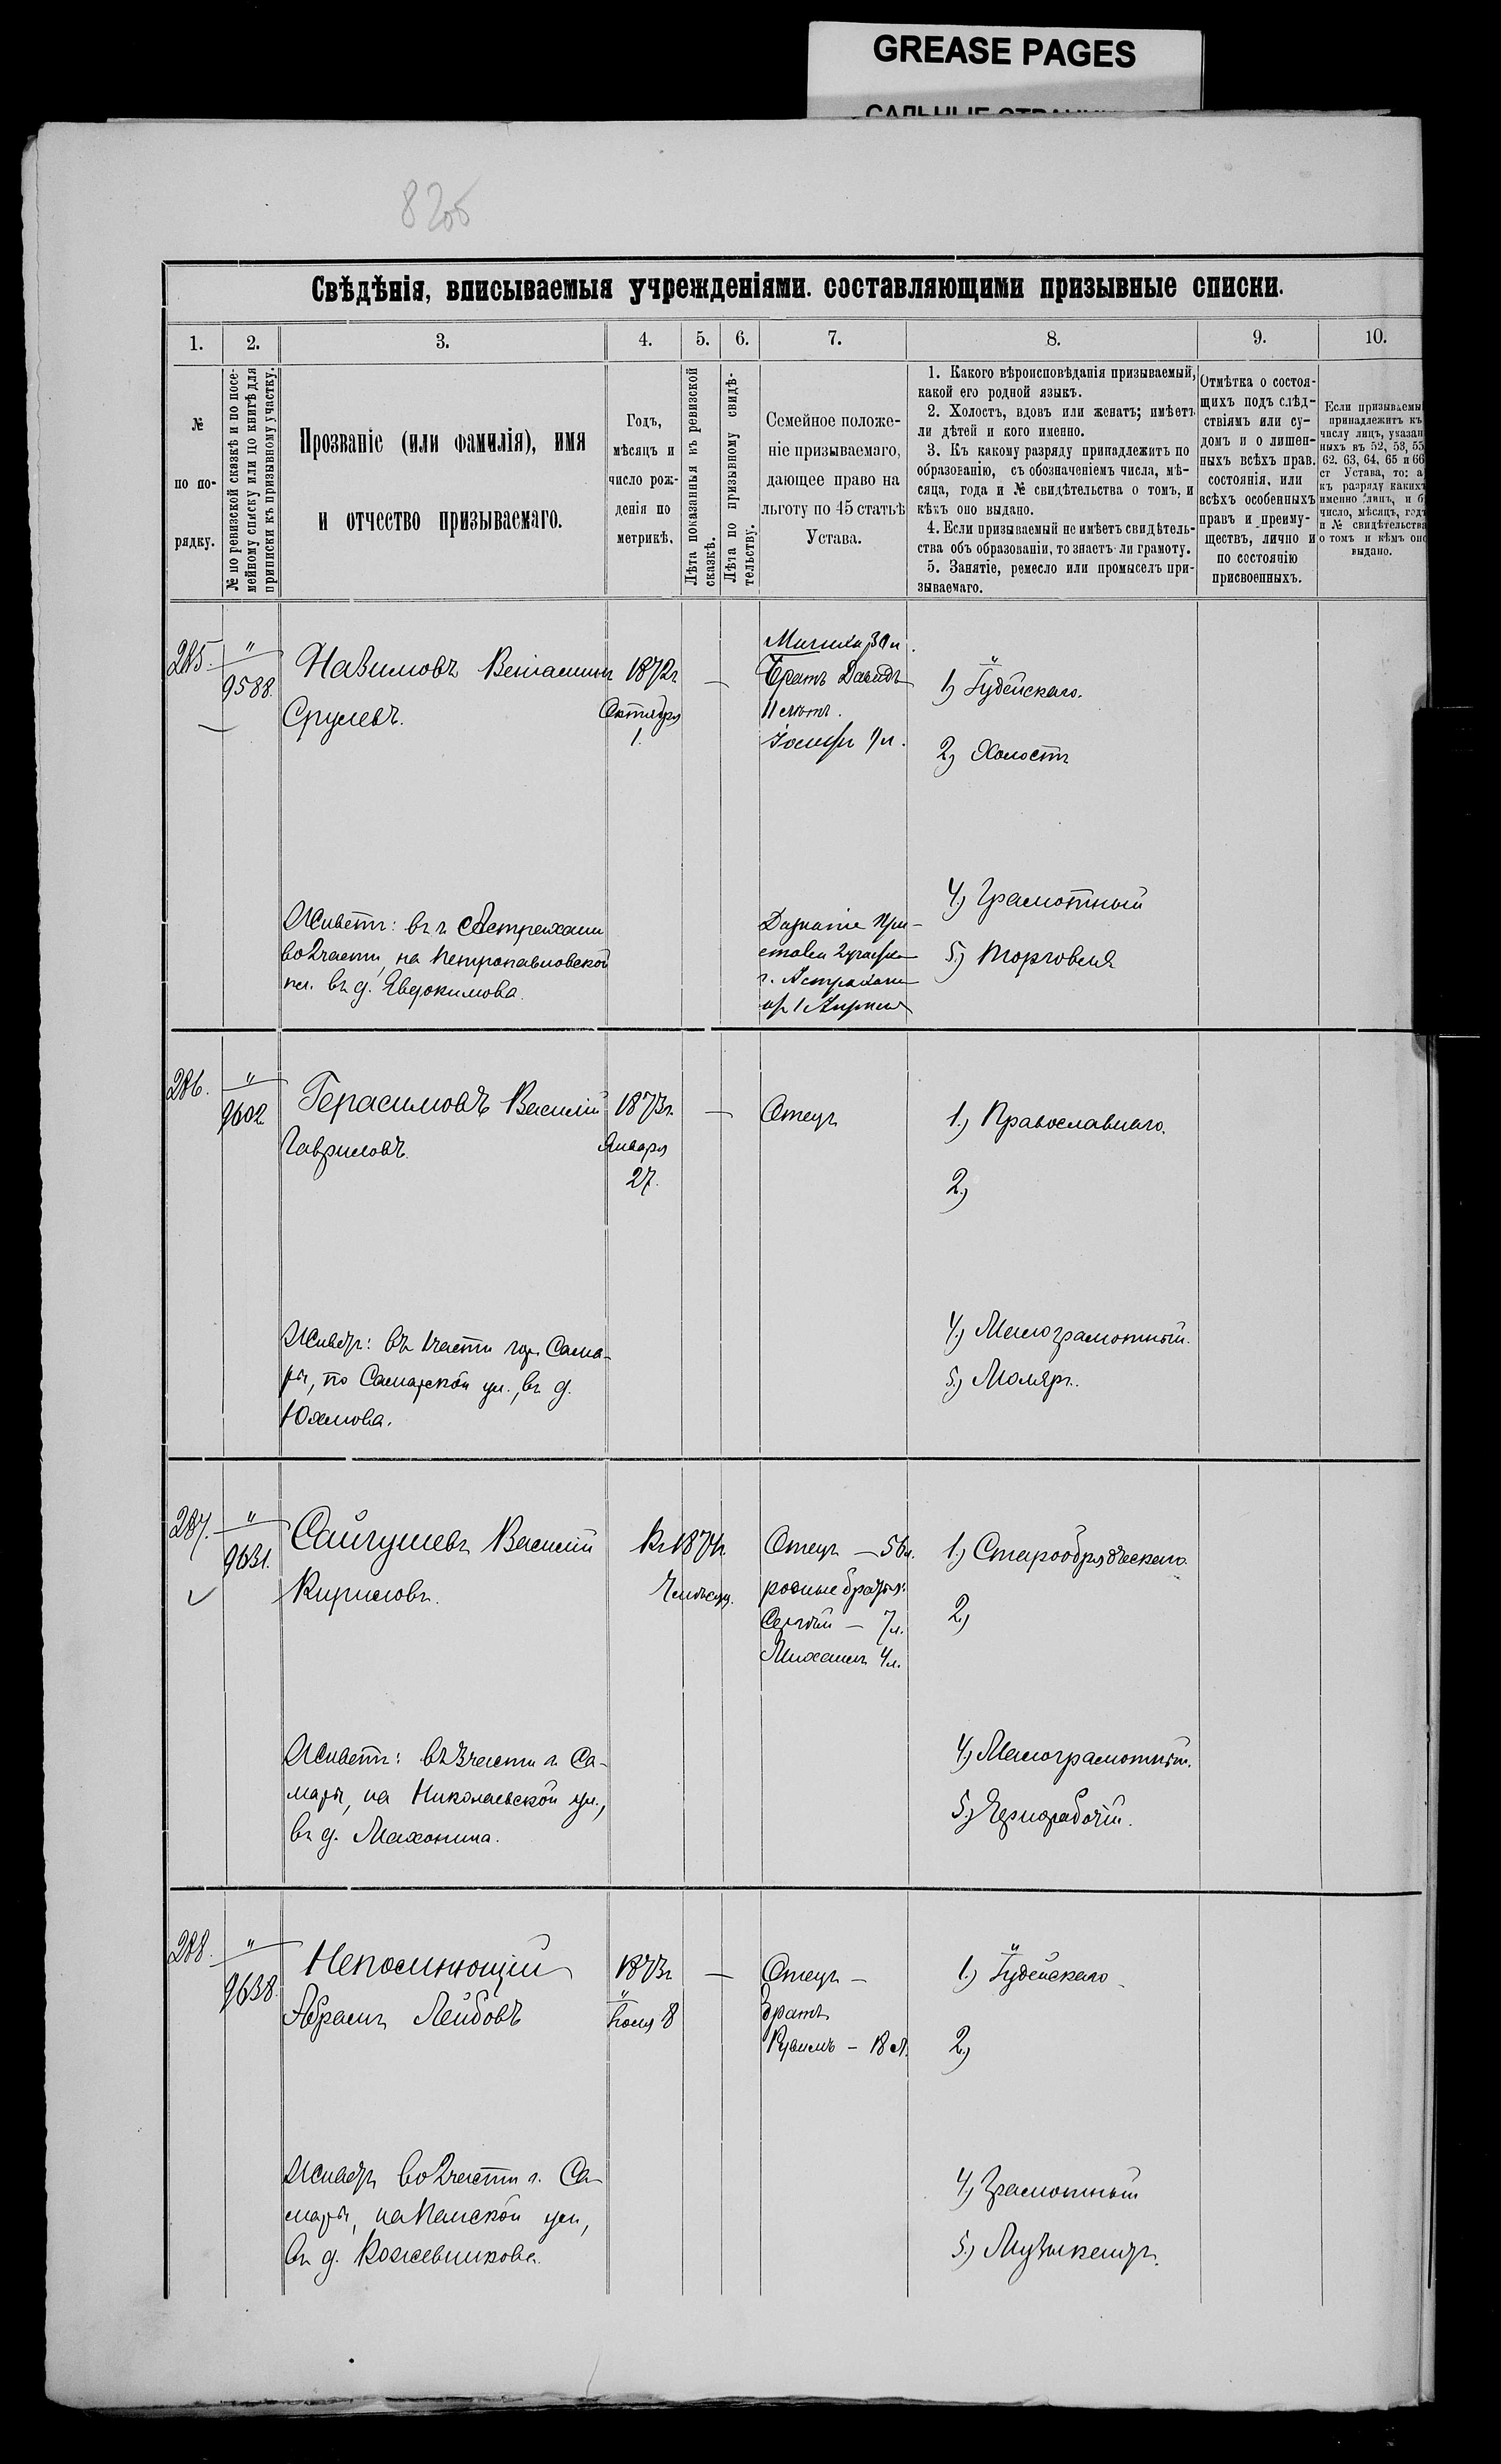 GREASE PAGES
САЛЬНЫЕ СТРАНИЦЫ
82об
Свѣдѣнія, вписываемыя учрежденіями. составляющими призывные списки.
1. 2. 3. 4. 5. 6. 7. 8. 9. 10.
№
по по-
рядку.
№ по ревизской сказкѣ и по посе-
мейному списку или по книгѣ для
приписки къ призывному участку.
Прозваніе (или фамилія), имя
и отчество призываемаго.
Годъ,
мѣсяцъ и
число рож-
денія по
метрикѣ.
Лѣта показанныя къ ревизской
сказкѣ.
Лѣта по призывному свидѣ-
тельству.
Семейное положе-
ніе призываемаго,
дающее право на
льготу по 45 статьѣ
Устава.
1. Какого вѣроисповѣданія призываемый,
какой его родной языкъ.
2. Холостъ, вдовъ или женатъ; имѣетъ
ли дѣтей и кого именно.
3. Къ какому разряду принадлежитъ по
образованію, съ обозначеніемъ числа, мѣ-
сяца, года и № свидѣтельства о томъ, и
кѣмъ оно выдано.
4. Если призываемый не имѣетъ свидѣтель-
ства объ образованіи, то знаетъ-ли грамоту.
5. Занятіе, ремесло или промыселъ при-
зываемаго.
Отмѣтка о состоя-
щихъ подъ слѣд-
ствіямъ или су-
домъ и о лишен-
ныхъ всѣхъ прав.
состоянія, или
всѣхъ особенныхъ
правъ и преиму-
ществъ, лично и
по состоянію
присвоенныхъ.
Если призываемы
принадлежитъ къ
числу лицъ, указан
ныхъ въ 52, 53, 55
62. 63, 64, 65 и 66
ст Устава, то: а
къ разряду какихъ
именно лицъ, и б
число, мѣсяцъ, годъ
и № свидѣтельства
о томъ и кѣмъ оно
выдано.
285.
"
9588.
Навимовъ Веніаминъ
Срулевъ.
1872г
Октября
1.
—
Братъ Давидъ
11 лѣтъ.
Іосифъ 7л.
1) Іудейскаго.
2) Холостъ
4) Грамотный
5) Торговля
Живетъ: въ г. Астрахани
во 2 части, на Петропавловской
пл. въ д. Евдокимова.
Дознаніе При-
става 2 участка
г. Астрахани
от 1 Апреля
286.
"
9602
Герасимовъ Василій
Гавриловъ.
1873г.
Января
27.
—
Отецъ
1.) Православнаго.
2.)
4.) Малограмотный.
5.) Маляръ.
Живетъ: въ 1 части гор. Сама-
ры, по Самарской ул., въ д.
287.
"
9631.
Сайгушевъ Василій
Кириловъ.
Отецъ — 56л.
родные братья:
Сергѣй — 7л.
Михаилъ 4л.
1.) Старообрядческаго.
2.)
4.) Малограмотный.
5.) Чернорабочій.
Живетъ: въ 3 части г. Са-
мары, на Николаевской ул.,
въ д. Махонина.
288.
"
9638.
Непомнющій
Абрамъ Лейбовъ
1873г
Іюля 8
—
Отецъ —
братъ
Рувимъ — 18 л.
1.) Іудейскаго
2.)
4.) Грамотный
5.) Музыкантъ.
Живетъ во 2 части г. Са-
мары, на Панской ул.,
въ д. Кожевникова.